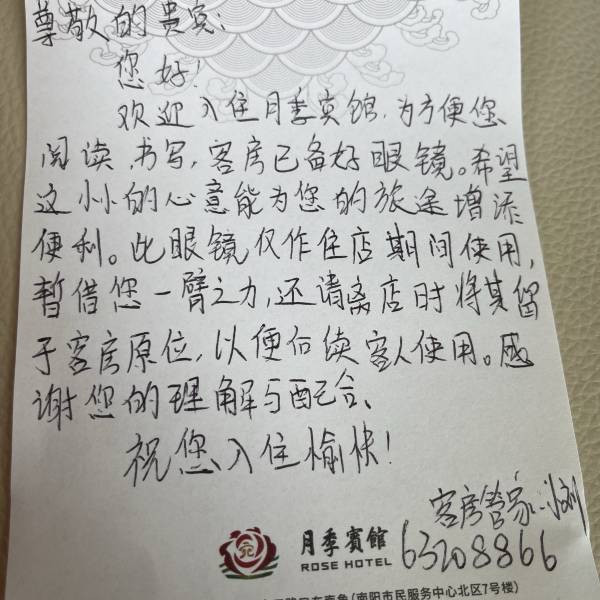 尊敬的贵宾:
您好!
欢迎入住月季宾馆,为方便您
阅读,书写,客房已备好眼镜。希望
这小小的心意能为您的旅途增添
便利。此眼镜仅作住店期间使用,
暂借您一臂之力,还请离店时将其留
于客房原位,以便后续客人使用。感
谢您的理解与配合、
祝您入住愉快!
客房管家:小刘
63208866
月季賓館
ROSE HOTEL
(南阳市民服务中心北区7号楼)